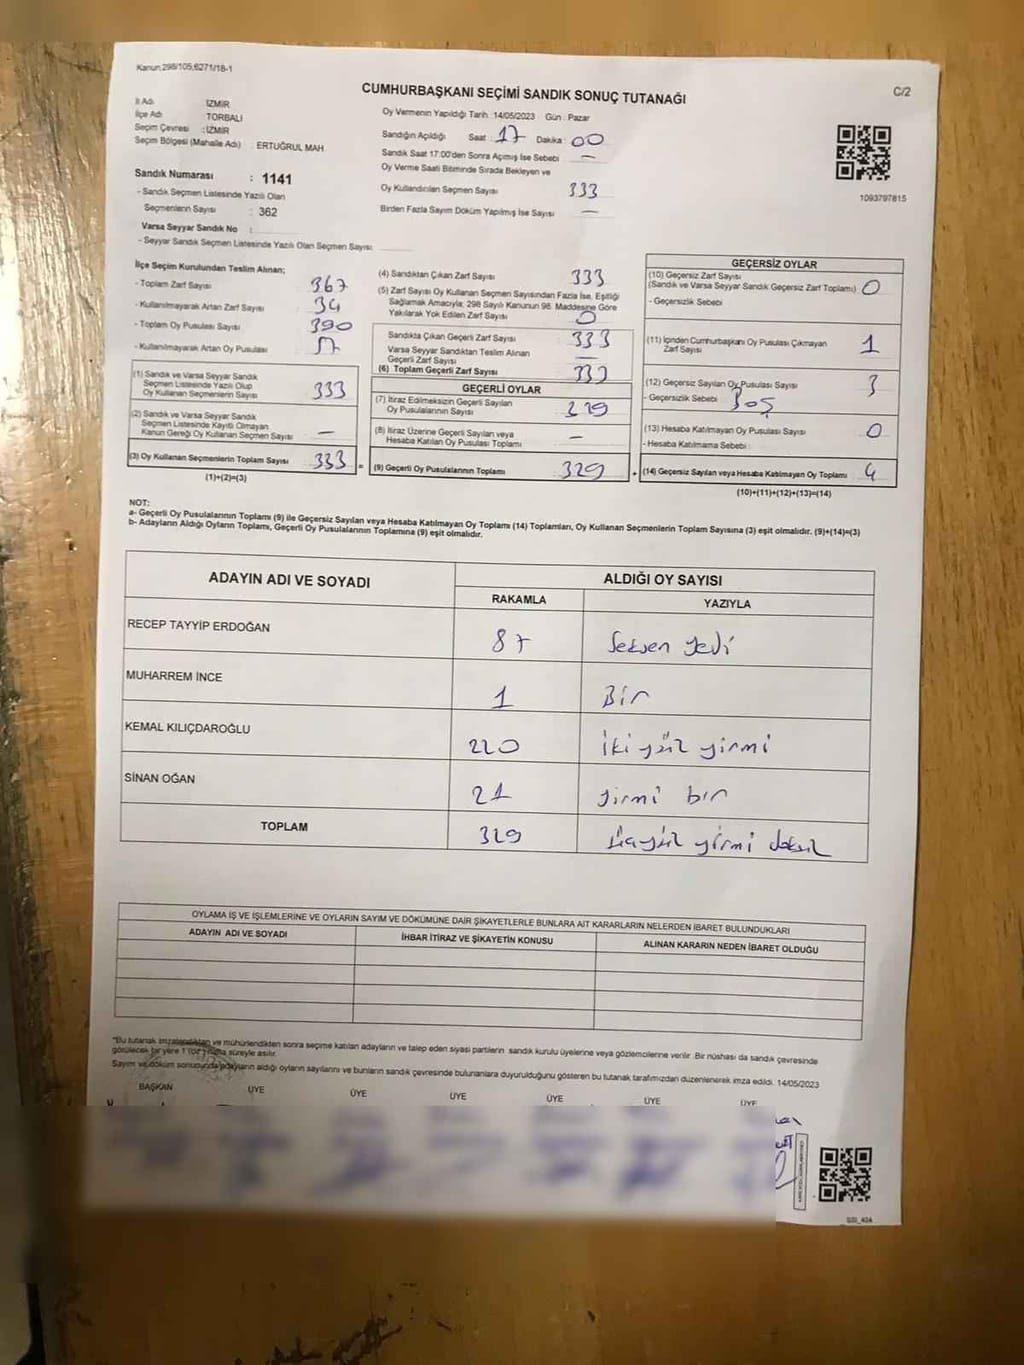 Kanun,298/105,6271/18-1
CUMHURBAŞKANI SEÇİMİ SANDIK SONUÇ TUTANAĞI
C/2
İl Adı İZMİR
İlçe Adı TORBALI
Seçim Çevresi : İZMİR
Seçim Bölgesi (Mahalle Adı) : ERTUĞRUL MAH
Sandık Numarası : 1141
- Sandık Seçmen Listesinde Yazılı Olan
Seçmenlerin Sayısı : 362
Varsa Seyyar Sandık No :
- Seyyar Sandık Seçmen Listesinde Yazılı Olan Seçmen Sayısı:
Oy Vermenin Yapıldığı Tarih: 14/05/2023 Gün : Pazar
Sandığın Açıldığı Saat : 17 Dakika : 00
Sandık Saat 17:00'den Sonra Açımış İse Sebebi —
Oy Verme Saati Bitiminde Sırada Bekleyen ve
Oy Kullandırılan Seçmen Sayısı 333
Birden Fazla Sayım Döküm Yapılmış İse Sayısı —
1093797815
İlçe Seçim Kurulundan Teslim Alınan;
- Toplam Zarf Sayısı 367
- Kullanılmayarak Artan Zarf Sayısı 34
- Toplam Oy Pusulası Sayısı 390
- Kullanılmayarak Artan Oy Pusulası
(1) Sandık ve Varsa Seyyar Sandık
Seçmen Listesinde Yazılı Olup
Oy Kullanan Seçmenlerin Sayısı 333
(2) Sandık ve Varsa Seyyar Sandık
Seçmen Listesinde Kayıtlı Olmayan
Kanun Gereği Oy Kullanan Seçmen Sayısı —
(3) Oy Kullanan Seçmenlerin Toplam Sayısı 333 =
(1)+(2)=(3)
(4) Sandıktan Çıkan Zarf Sayısı 333
(5) Zarf Sayısı Oy Kullanan Seçmen Sayısından Fazla İse, Eşitliği
Sağlamak Amacıyla; 298 Sayılı Kanunun 98. Maddesine Göre
Yakılarak Yok Edilen Zarf Sayısı 0
Sandıkta Çıkan Geçerli Zarf Sayısı 333
Varsa Seyyar Sandıktan Teslim Alınan
Geçerli Zarf Sayısı —
(6) Toplam Geçerli Zarf Sayısı 333
GEÇERLİ OYLAR
(7) İtiraz Edilmeksizin Geçerli Sayılan
Oy Pusulalarının Sayısı 329
(8) İtiraz Üzerine Geçerli Sayılan veya
Hesaba Katılan Oy Pusulası Toplamı —
(9) Geçerli Oy Pusulalarının Toplamı 329 +
GEÇERSİZ OYLAR
(10) Geçersiz Zarf Sayısı
(Sandık ve Varsa Seyyar Sandık Geçersiz Zarf Toplamı) 0
- Geçersizlik Sebebi
(11) İçinden Cumhurbaşkanı Oy Pusulası Çıkmayan
Zarf Sayısı 1
(12) Geçersiz Sayılan Oy Pusulası Sayısı 3
- Geçersizlik Sebebi Boş
(13) Hesaba Katılmayan Oy Pusulası Sayısı 0
- Hesaba Katılmama Sebebi :
(14) Geçersiz Sayılan veya Hesaba Katılmayan Oy Toplamı 4
(10)+(11)+(12)+(13)=(14)
NOT:
a- Geçerli Oy Pusulalarının Toplamı (9) ile Geçersiz Sayılan veya Hesaba Katılmayan Oy Toplamı (14) Toplamları, Oy Kullanan Seçmenlerin Toplam Sayısına (3) eşit olmalıdır. (9)+(14)=(3)
b- Adayların Aldığı Oyların Toplamı, Geçerli Oy Pusulalarının Toplamına (9) eşit olmalıdır.
ADAYIN ADI VE SOYADI ALDIĞI OY SAYISI
RAKAMLA YAZIYLA
RECEP TAYYİP ERDOĞAN 87 Seksen yedi
MUHARREM İNCE 1 Bir
KEMAL KILIÇDAROĞLU 220 iki yüz yirmi
SİNAN OĞAN 21 yirmi bir
TOPLAM 329 üçyüz yirmi dokuz
OYLAMA İŞ VE İŞLEMLERİNE VE OYLARIN SAYIM VE DÖKÜMÜNE DAİR ŞİKAYETLERLE BUNLARA AİT KARARLARIN NELERDEN İBARET BULUNDUKLARI
ADAYIN ADI VE SOYADI İHBAR İTİRAZ VE ŞİKAYETİN KONUSU ALINAN KARARIN NEDEN İBARET OLDUĞU
"Bu tutanak imzalandıktan ve mühürlendikten sonra seçime katılan adayların ve talep eden siyasi partilerin sandık kurulu üyelerine veya gözlemcilerine verilir. Bir nüshası da sandık çevresinde
görülecek bir yere 1 (bir) hafta süreyle asılır.
Sayım ve döküm sonucunda adayların aldığı oyların sayılarını ve bunların sandık çevresinde bulunanlara duyurulduğunu gösteren bu tutanak tarafımızdan düzenlenerek imza edildi. 14/05/2023
BAŞKAN ÜYE ÜYE ÜYE ÜYE ÜYE ÜYE